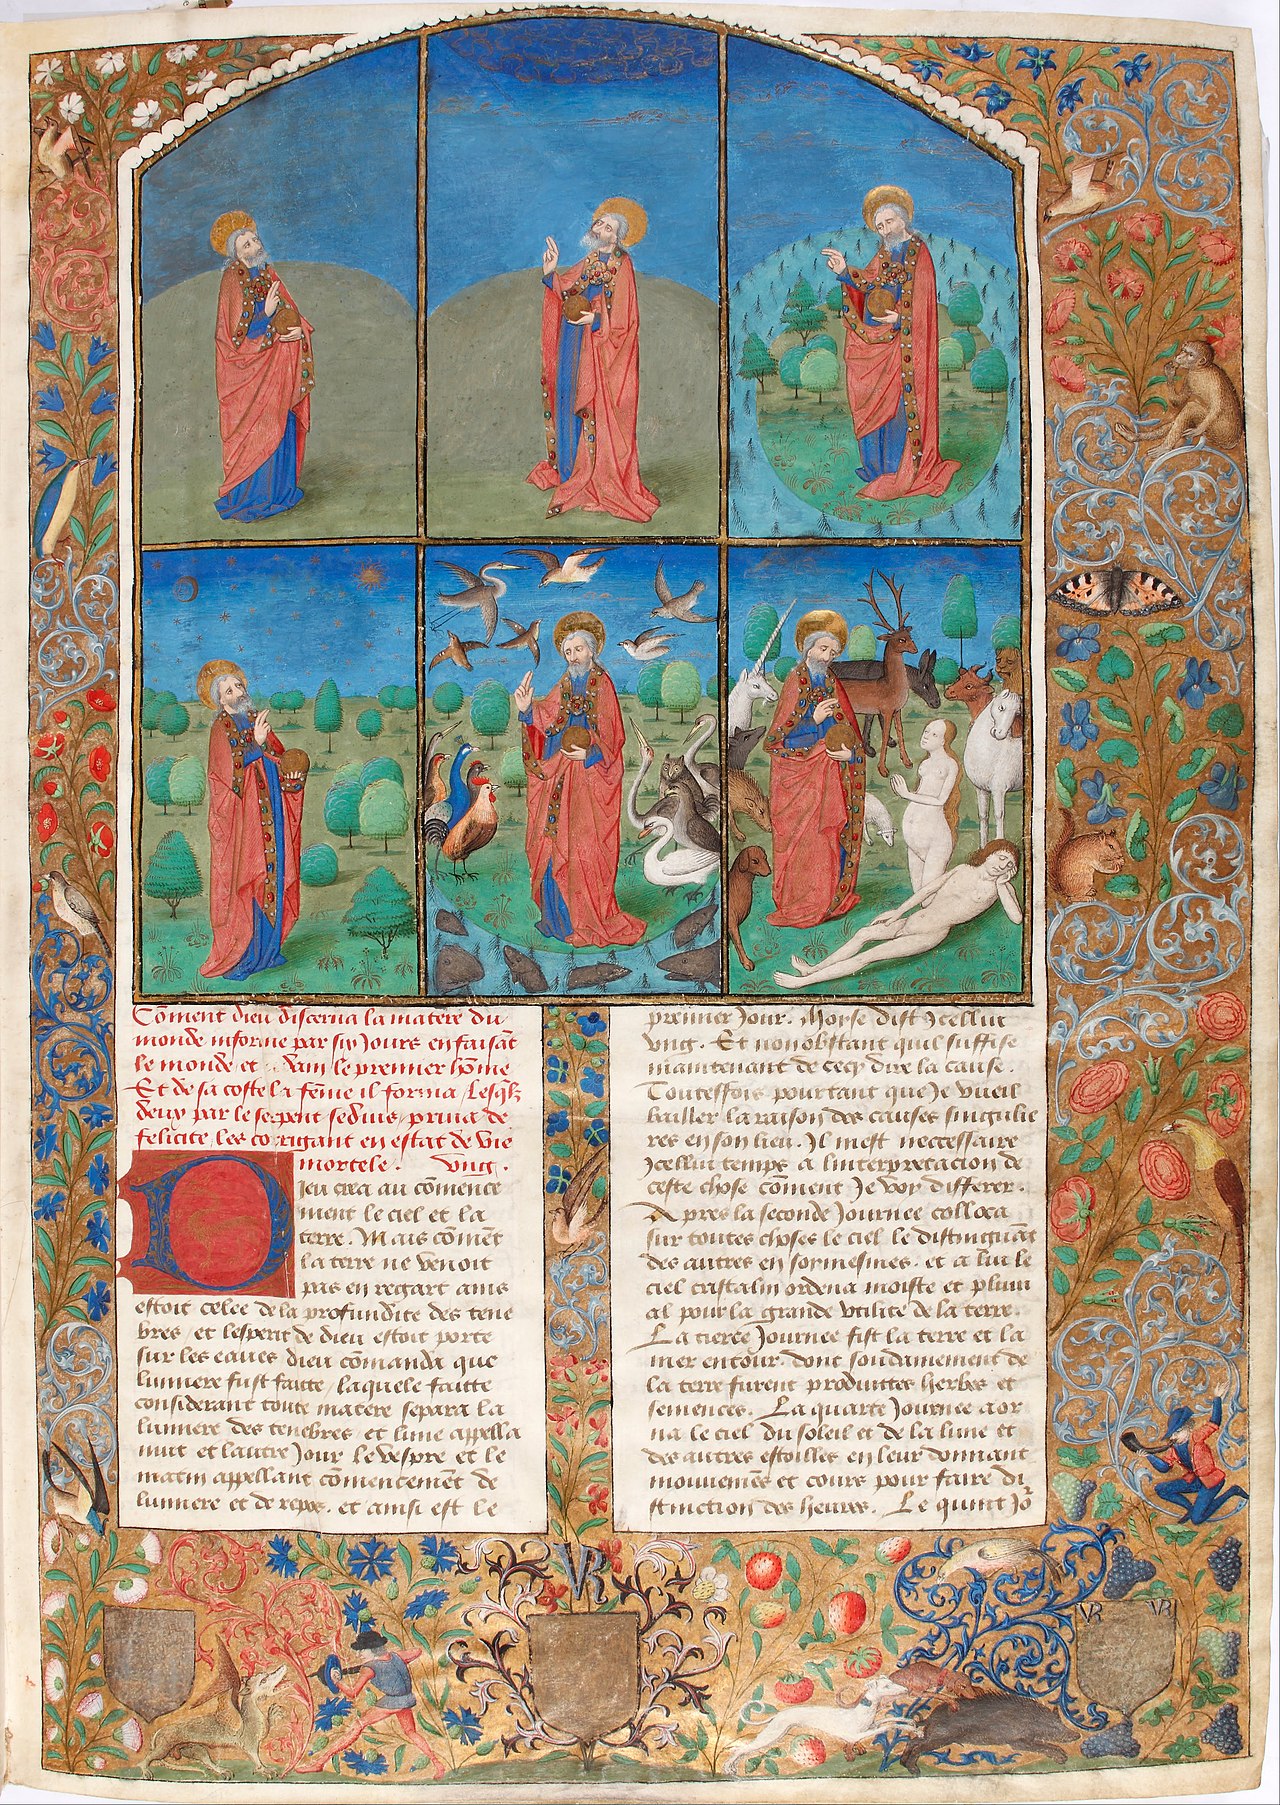 Com̃ent dieu discerna la matere du
monde informe par six Jours en faisãt
le monde et Adam le premier hõme
Et de sa coste la fẽme il forma / Lesqlz
deux par le serpent seduis / priua de
felicite / les corrigant en estat de vie
mortele. Vng.
Dieu crea au cõmence
ment le ciel et la
terre. Mais cõmẽt
la terre ne venoit
pas en regart ains
estoit celee de la profundite des tene
bres / et lesperit de dieu estoit porte
sur les eaues dieu cõmanda que
lumiere fust faitte / laquele faitte
considerant toute matere separa la
lumiere des tenebres / et lune appella
nuit et lautre Jour le vespre et le
matin appellant cõmencemẽt de
lumiere et de repos. et ainsi est le
premier Jour. Moyse dist Jcellui
vng. Et non obstant quil suffise
maintenant de cecy dire la cause.
Touteffois pourtant que Je vueil
bailler la raison des causes singulie
res en son lieu. Jl mest necessaire
Jcellui temps a linterpretacion de
ceste chose cõment Je voy differer.
Apres la seconde Journee colloca
sur toutes choses le ciel le distinguãt
des autres en soymesmes. et a lui le
ciel cristalin ordena moiste et pluui
al pour la grande vtilite de la terre.
La tierce Journee fist la terre et la
mer entour. dont soudainement de
la terre furent produittes herbes et
semences. La quarte Journee aor
na le ciel du soleil et de la lune et
des autres estoilles en leur donnant
mouuemẽs et cours pour faire di
stinction des heures. Le quint Jor̃
VR
VR VR